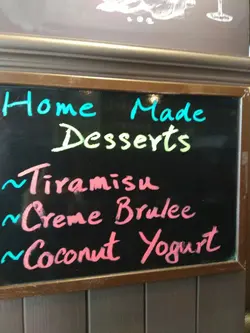 Home Made
Desserts
~Tiramisu
~Creme Brulee
~Coconut Yogurt